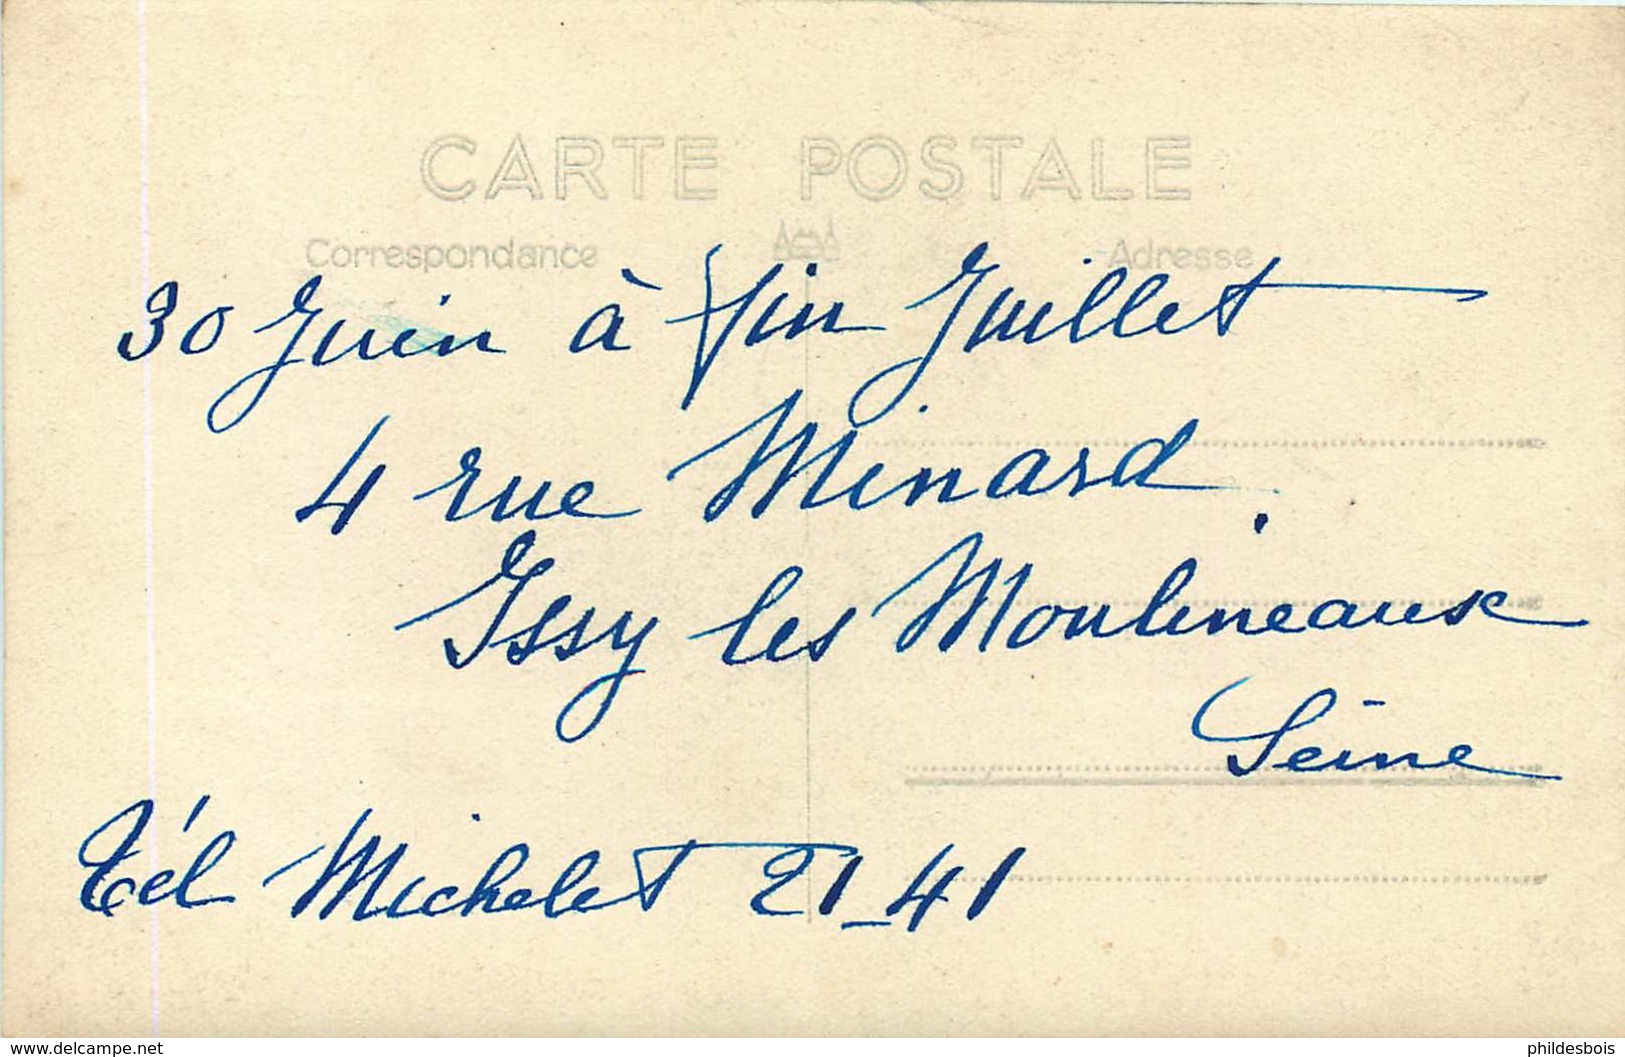 CARTE POSTALE
Correspondance Adresse
30 Juin à fin Juillet
4 rue Minard
Issy les Moulineaux
Seine
Tél Michelet 21_41
www.delcampe.net phildesbois